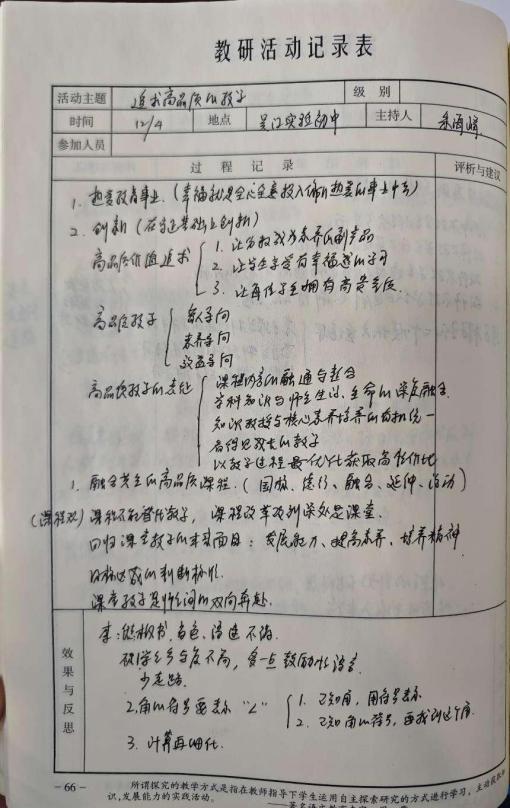 教研活动记录表
活动主题 追求高品质的教学 级别
时间 12/4 地点 吴江实验初中 主持人
参加人员
过程记录 评析与建议
1. 热爱教育事业.(幸福就是全心全意投入你所热爱的事业中去)
2. 创新(在守正基础上创新)
高品质价值追求
1. 让分数成为素养的副产品
2. 让学生享有幸福
3. 让每位学生拥有高贵气质
高品质教学
教学导向
素养导向
效益导向
高品质教学的表征
课程内容的融通与整合
学科知识与师生生活、生命的深度融合
知识教授与核心素养培养的有机统一
看得见成长的教学
以教学过程最优化获取高性价比
1. 融合共生的高品质课程.(国脉、德行、融合、延伸、活动)
(课程观)课程不能替代教学, 课程改革改到深处是课堂.
回归课堂教学的本来面目:发展能力、提高素养、培养精神
目标达成的判断标准.
课堂教学是师生间的双向奔赴.
效果与反思
李:板书.
学生参与度不高, 多一点鼓励性语言
少走路.
2. 角的符号要表示“∠”
1. 已知角, 用符号表示
2. 已知角的符号, 要找到这个角.
3. 计算再细化.
-66- 所谓探究的教学方式是指在教师指导下学生运用自主探索研究的方式进行学习,主动获取知
识,发展能力的实践活动。